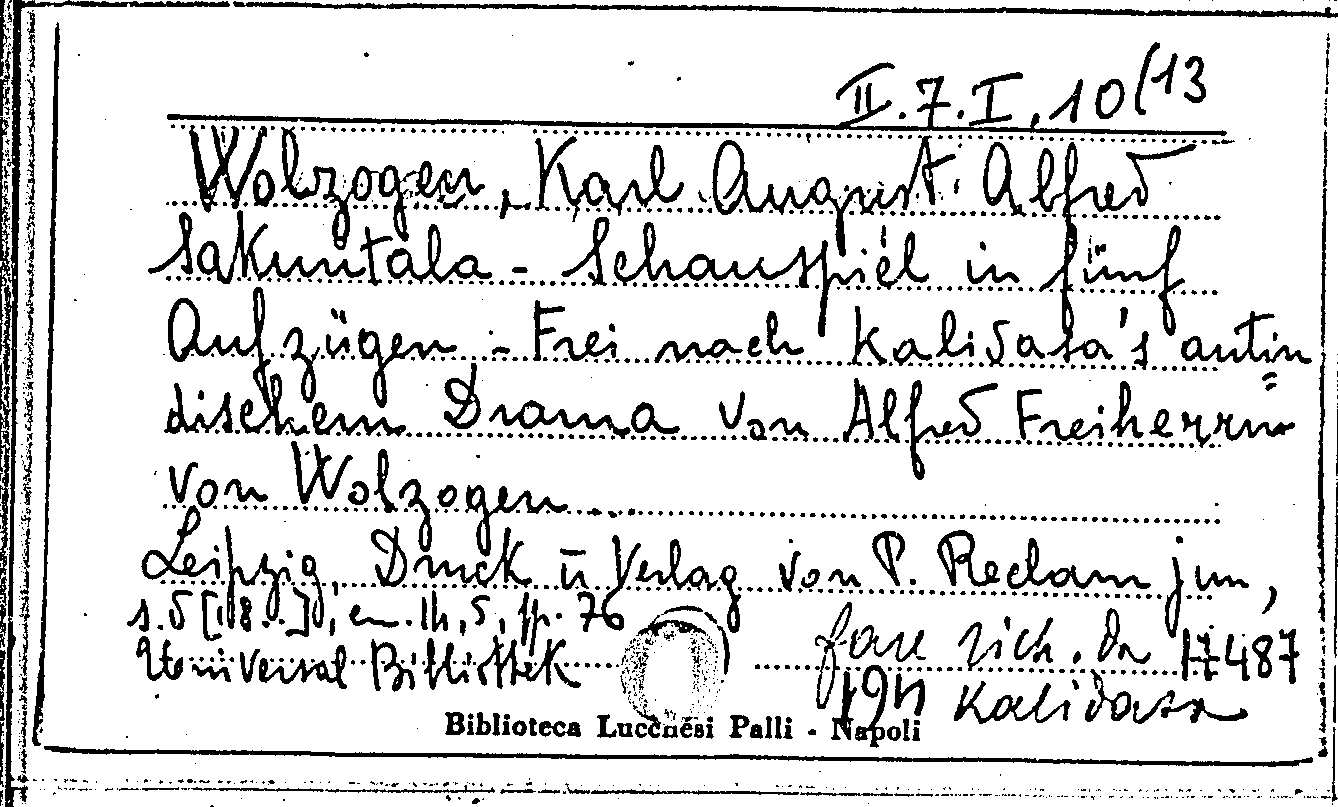 II.7.I,10(13
Wolzogen, Karl August Alfred
Sakuntala - Schauspiel in fünf
Aufzügen - Frei nach Kalidasa's antin
dischem Drama von Alfred Freiherrn
von Wolzogen....
Leipzig, Druck ü Verlag von P. Reclam jun,
s.d [18..], in 16, pp. 76
Universal Bibliothek
fare rich. da 17487
Kalidasa
Biblioteca Lucchesi Palli - Napoli